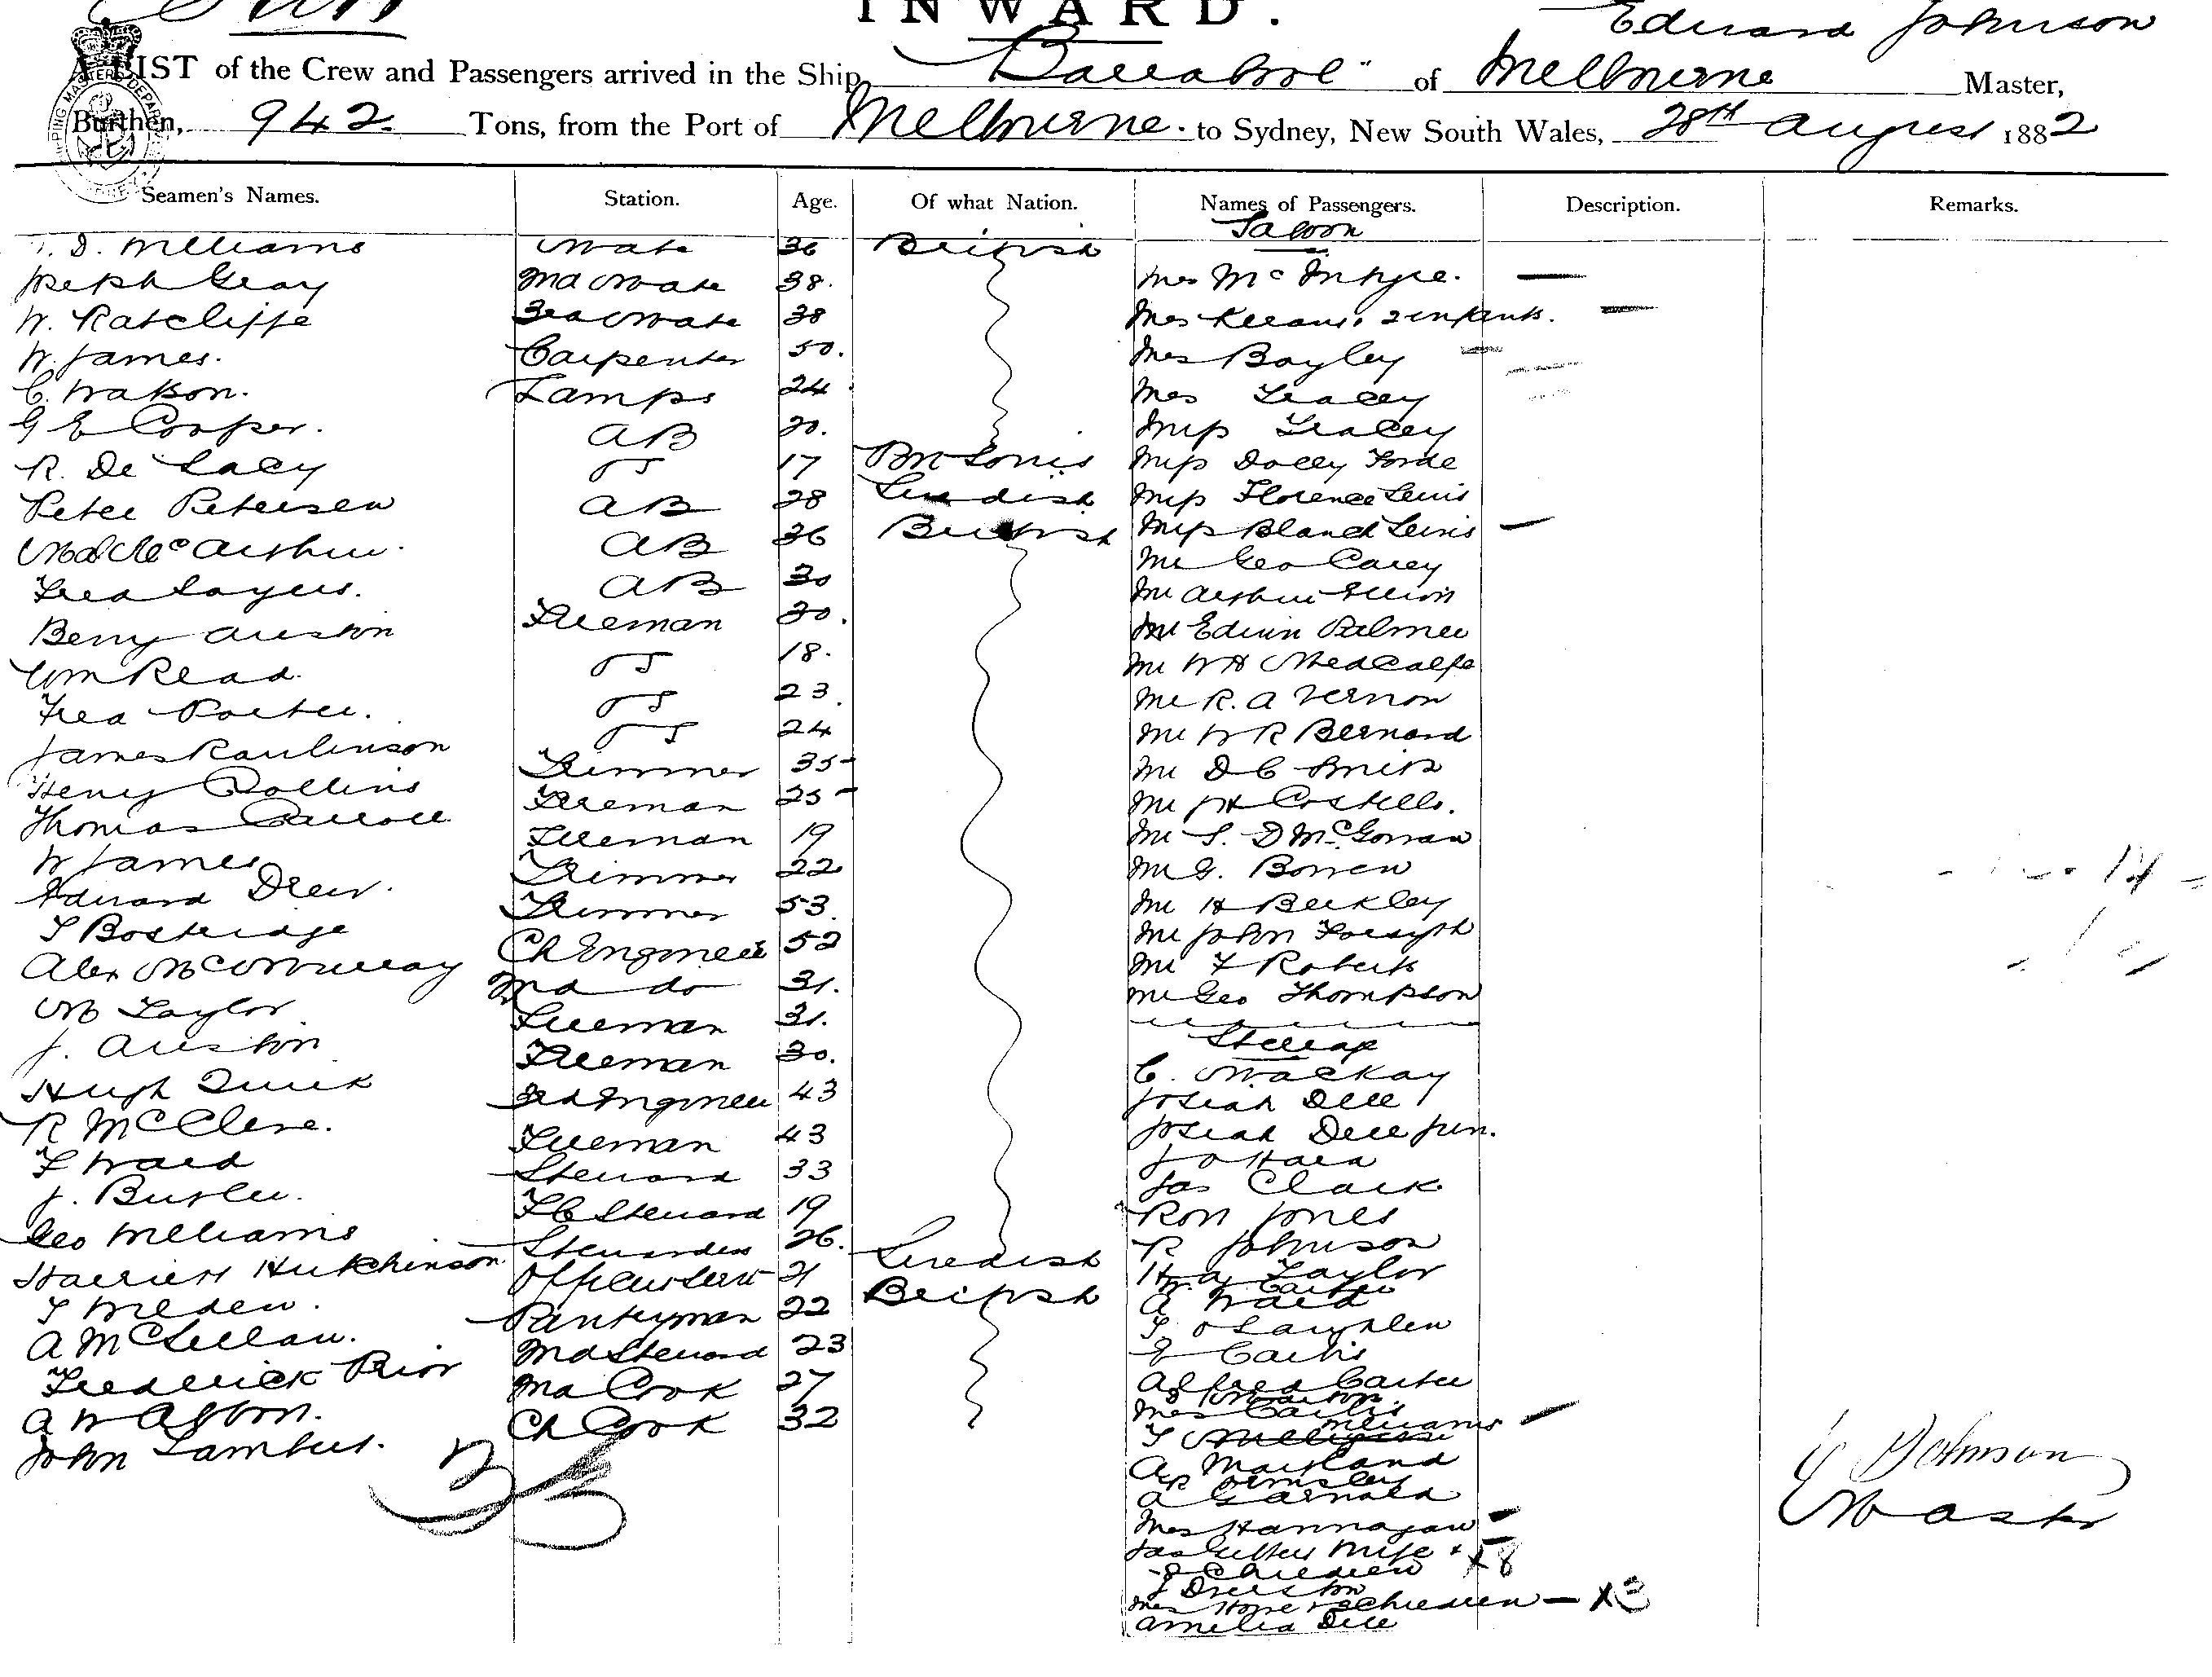 INWARD.
Edward Johnson
A LIST of the Crew and Passengers arrived in the Ship "Barrabool" of Melbourne Master,
Burthen, 942 Tons, from the Port of Melbourne to Sydney, New South Wales, 28th August 1882
Seamen's Names. Station. Age. Of what Nation. Names of Passengers. Description. Remarks.
Saloon
D. Williams Mate 36 British
Joseph Gray 2nd Mate 38. Mrs McIntyre.
W. Ratcliffe 3rd Mate 38 Mrs 2 infants.
W. James. Carpenter 50. Mrs Bayley
C. Watson. Lamps 24 Mrs Tracey
G E Cooper. AB 20. Miss Tracey
R. De Lacy OS 17 Miss Dolly Forde
Peter Petersen AB 28 Swedish Miss Florence Lewis
McArthur. AB 36 British Miss Blanch Lewis
Fred Sayers. AB 30 Mr Geo Carey
Mr Arthur
Berry Austin Fireman 30. Mr Edwin Palmer
Wm Read. OS 18. Mr W H Medcalfe
Fred Porter. OS 23. Mr R. A Vernon
James Rawlinson OS 24 Mr W R Bernard
Henry Collins Trimmer 35 Mr D C
Thomas Carroll Fireman 25 Mr J H Costello.
W James Fireman 19 Mr S. D McGowan
Edward Drew. Trimmer 22 Mr G. Bowen
T Bostridge Trimmer 53. Mr H Berkley
Alex McMurray Ch Engineer 52 Mr John Forsyth
M Taylor 2nd do 31. Mr F Roberts
J. Austin Fireman 31. Mr Geo Thompson
Hugh Quirk Fireman 30. Steerage
R McClere. 3rd Engineer 43 C. Mackay
F Ward Fireman 43 Josiah Dell
J. Butler. Steward 33 Josiah Dell jun.
Geo Williams F C Steward 19 J O Hara
Harriett Hutchinson Stewardess 26. Jas Clark
T Officers Servt 21 Swedish Robt Jones
A McLellan. Pantryman 22 British R Johnson
Frederick Prior 2nd Steward 23 H A Taylor
A W Ashton. 2nd Cook 27 W. Carter
John Lambert. Ch Cook 32 A Ward
T. O Laughlen
E Curtis
Alfred Carter
Mrs Curtis
T Williams
A Maitland
R Ormsley
A Garnold
Mrs Hannagan
Jas Wife &
Children X8
Mrs Hope & 2 Children X3
Amelia Dell
E Johnson
Master